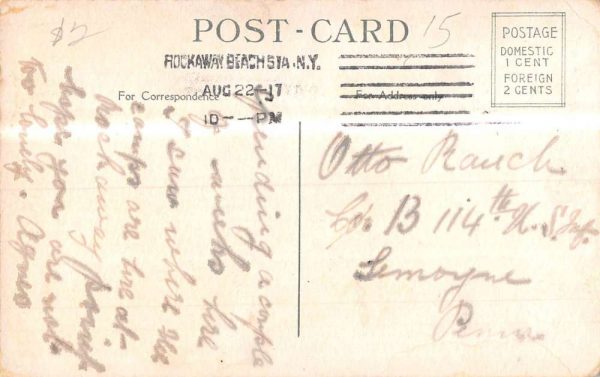 $2
POST-CARD
15
POSTAGE
DOMESTIC
1 CENT
FOREIGN
2 CENTS
ROCKAWAY BEACH STA. N.Y.
AUG 22-17
10--PM
For Correspondence
For Address only
Spending a couple
of weeks here
I saw where the
camps are here at
Rockaway point
hope you are not
too busy. Agnes
Otto Rauch
Co. B 114th U.S. Inf.
Lemoyne
Penn.